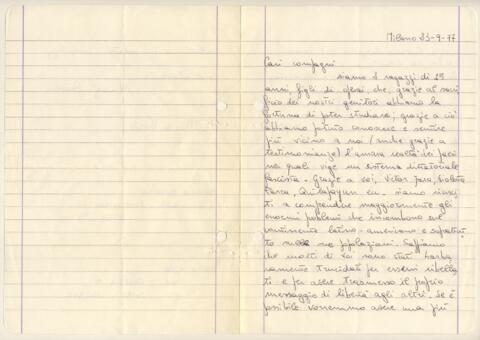 Milano 23-9-77
Cari compagni
siamo 2 ragazzi di 19
anni, figli di operai che, grazie al sacri
ficio dei nostri genitori abbiamo la
fortuna di poter studiare, grazie a ciò
abbiamo potuto conoscere e sentire
più vicino a noi (anche grazie a
testimonianze) l'amara realtà dei paesi
nei quali vige un sistema dittatoriale
fascista. Grazie a voi, Victor Jara, Violeta
Parra, Quilapayun ecc. siamo riusci
ti a comprendere maggiormente gli
enormi problemi che incombono sul
continente latino-americano e soprattut
to sulle popolazioni. Sappiamo
che molti di voi sono stati barba
ramente trucidati per essersi ribella
ti e per avere trasmesso il proprio
messaggio di libertà agli altri. Se è
possibile vorremmo avere una più